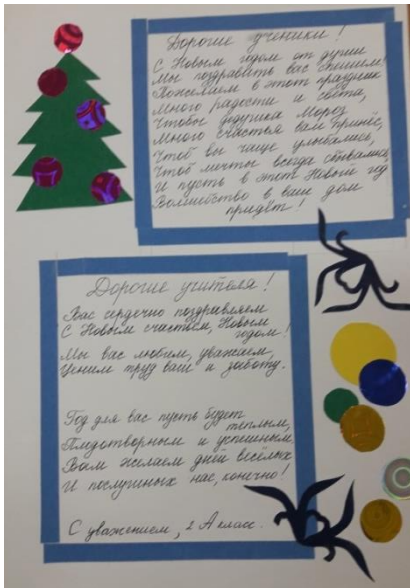 Дорогие ученики!
С Новым годом от души
Мы поздравить вас спешим!
Пожелаем в этот праздник
Много радости и света,
Чтобы дедушка Мороз
Много счастья вам принёс,
Чтоб вы чаще улыбались,
Чтоб мечты всегда сбывались
И пусть в этот Новый год
Волшебство в ваш дом
придёт!
Дорогие учителя!
Вас сердечно поздравляем
С Новым счастьем, Новым
годом!
Мы вас любим, уважаем,
Ценим труд ваш и заботу.
Год для вас пусть будет
тёплым,
Плодотворным и успешным,
Вам желаем дней весёлых
И послушных нас, конечно!
С уважением, 2 А класс.